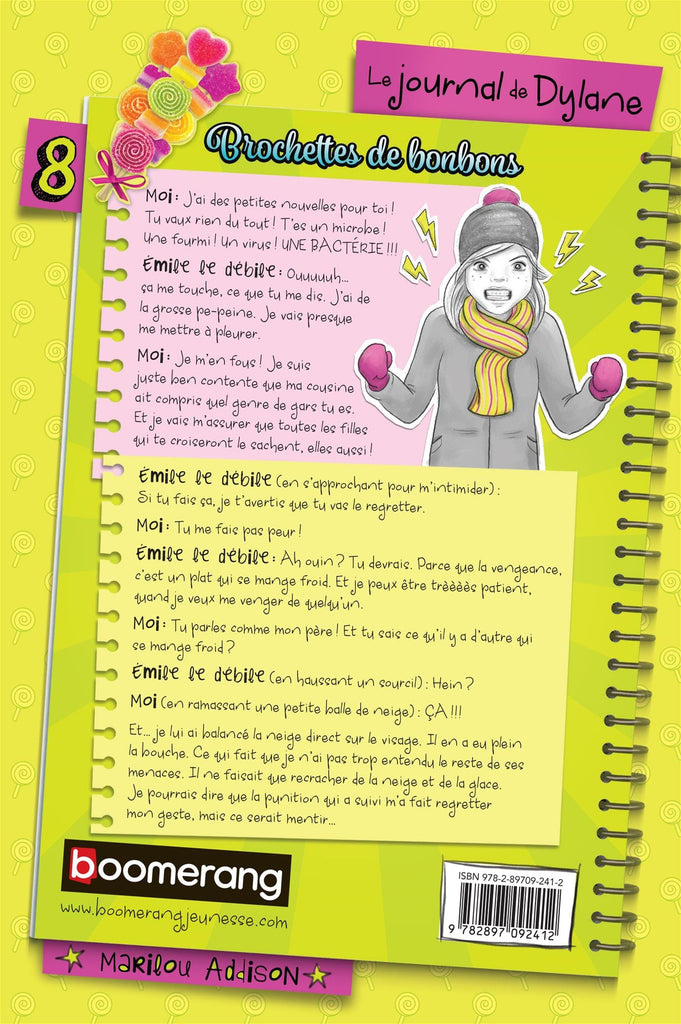 Le journal de Dylane
8
Brochettes de bonbons
Moi : J'ai des petites nouvelles pour toi !
Tu vaux rien du tout ! T'es un microbe !
Une fourmi ! Un virus ! UNE BACTÉRIE !!!
Émile le débile : Ouuuuuh...
ça me touche, ce que tu me dis. J'ai de
la grosse pe-peine. Je vais presque
me mettre à pleurer.
Moi : Je m'en fous ! Je suis
juste ben contente que ma cousine
ait compris quel genre de gars tu es.
Et je vais m'assurer que toutes les filles
qui te croiseront le sachent, elles aussi !
Émile le débile (en s'approchant pour m'intimider) :
Si tu fais ça, je t'avertis que tu vas le regretter.
Moi : Tu me fais pas peur !
Émile le débile : Ah ouin ? Tu devrais. Parce que la vengeance,
c'est un plat qui se mange froid. Et je peux être trèèèès patient,
quand je veux me venger de quelqu'un.
Moi : Tu parles comme mon père ! Et tu sais ce qu'il y a d'autre qui
se mange froid ?
Émile le débile (en haussant un sourcil) : Hein ?
Moi (en ramassant une petite balle de neige) : ÇA !!!
Et... je lui ai balancé la neige direct sur le visage. Il en a eu plein
la bouche. Ce qui fait que je n'ai pas trop entendu le reste de ses
menaces. Il ne faisait que recracher de la neige et de la glace.
Je pourrais dire que la punition qui a suivi m'a fait regretter
mon geste, mais ce serait mentir...
boomerang
www.boomerangjeunesse.com
ISBN 978-2-89709-241-2
9 782897 092412
Marilou Addison